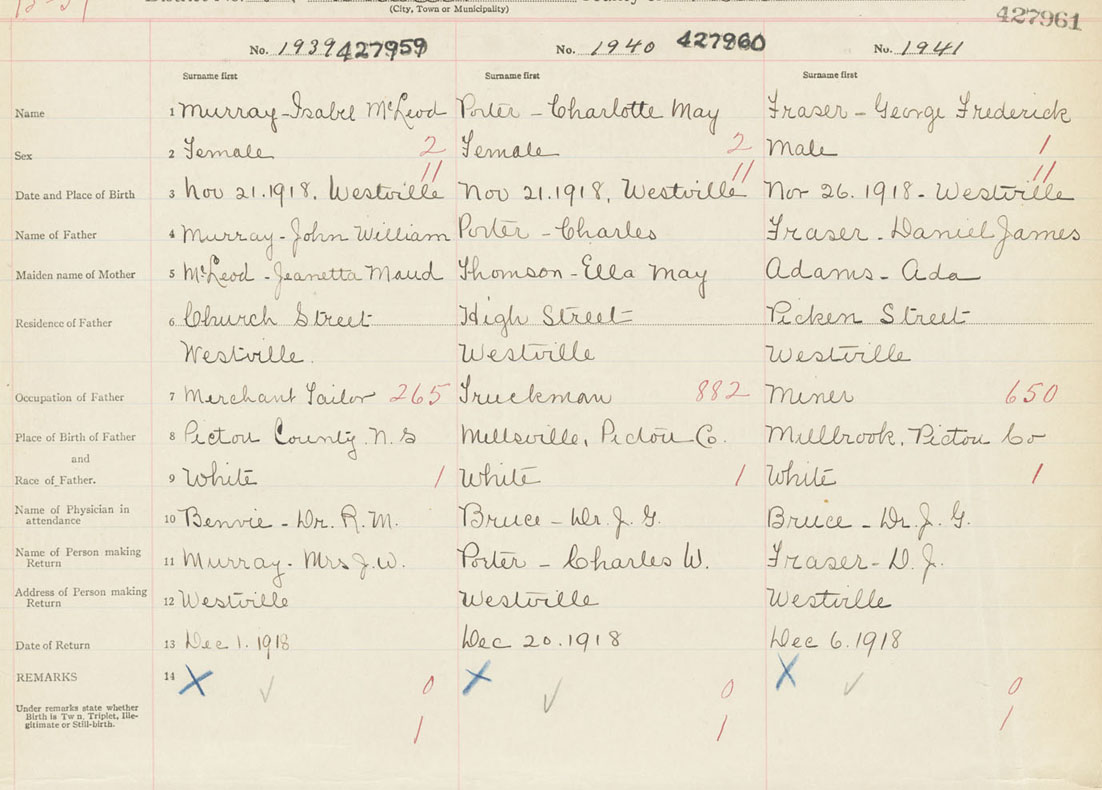 (City, Town or Municipality)
427961
No. 1939 427959 No. 1940 427960 No. 1941
Surname first Surname first Surname first
Name 1 Murray-Isabel McLeod Porter - Charlotte May Fraser - George Frederick
Sex 2 Female 2 Female 2 Male 1
11 11 11
Date and Place of Birth 3 Nov 21.1918, Westville Nov 21.1918, Westville Nov 26. 1918 - Westville
Name of Father 4 Murray-John William Porter - Charles Fraser - Daniel James
Maiden name of Mother 5 McLeod - Jeanetta Maud Thomson - Ella May Adams - Ada
Residence of Father 6 Church Street High Street Picken Street
Westville. Westville Westville
Occupation of Father 7 Merchant Tailor 265 Truckman 882 Miner 650
Place of Birth of Father 8 Pictou County. N.S Millsville, Pictou Co. Millbrook, Pictou Co
and
Race of Father. 9 White 1 White 1 White 1
Name of Physician in
attendance 10 Benvie - Dr. R. M. Bruce - Dr. J. G. Bruce - Dr J. G.
Name of Person making
Return 11 Murray - Mrs J. W. Porter - Charles W. Fraser - D. J.
Address of Person making
Return 12 Westville Westville Westville
Date of Return 13 Dec 1. 1918 Dec 20. 1918 Dec 6. 1918
REMARKS 14 X ✓ 0 X ✓ 0 X ✓ 0
Under remarks state whether
Birth is Tw n, Triplet, Ille-
gitimate or Still-birth. 1 1 1